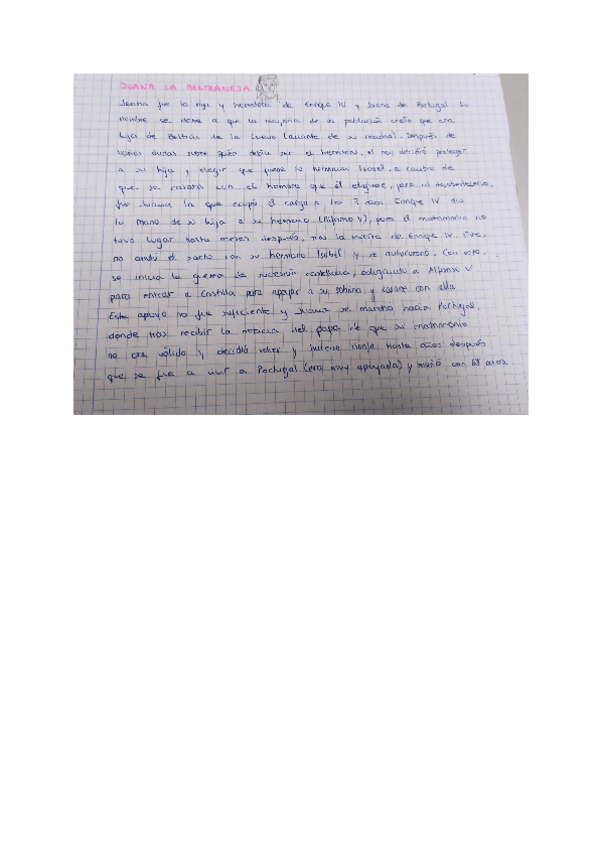 JUANA LA BELTRANEJA
Juana fue la hija y heredera de Enrique IV y Juana de Portugal. Su
nombre se debe a que la mayoría de la población creía que era
hija de Beltrán de la Cueva (amante de su madre). Después de
varias dudas sobre quién debía ser el heredero, el rey decidió proteger
a su hija y elegir que fuese su hermana Isabel, a cambio de
que se casara con el hombre que él eligiese, pero, al desobedecerlo,
fue Juana la que ocupó el cargo a los 7 años Enrique IV dio
la mano de su hija a su hermano (Alfonso V), pero el matrimonio no
tuvo lugar hasta meses después, tras la muerte de Enrique IV.
no anuló el pacto con su hermana Isabel y se autoproclamó. Con esto,
se inicia la guerra de sucesión castellana, obligando a Alfonso V
para entrar a Castilla para apoyar a su sobrina y casarse con ella
Este apoyo no fue suficiente y Juana se marchó hacia Portugal,
donde tras recibir la noticia del papa de que su matrimonio
no era válido y decidió volver y meterse monja hasta años después
que se fue a vivir a Portugal (era muy apoyada) y murió con 68 años.